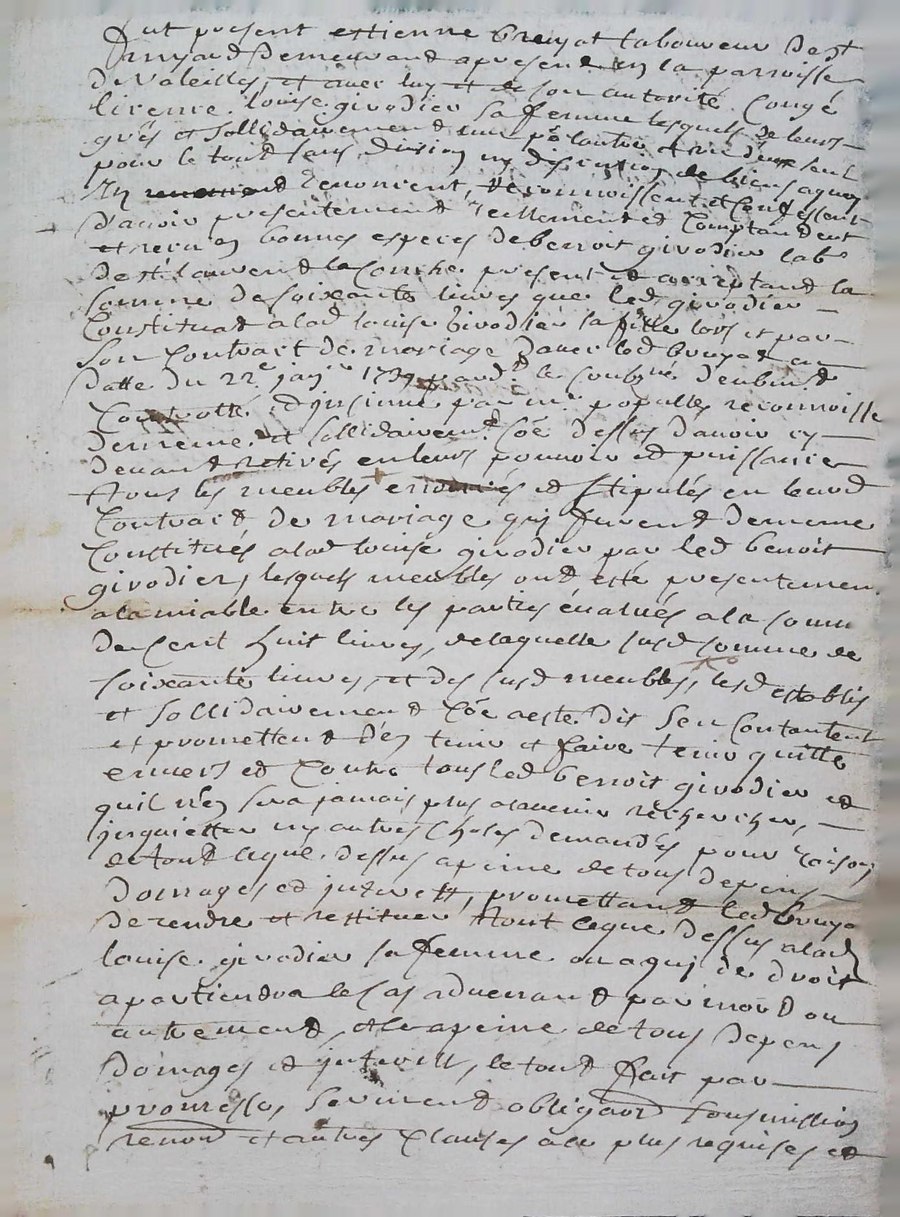 Fut présent estienne bruyat laboureur de st
demeurand apresent en la parroisse
de valeilles, et avec luy et de son autorité Congé
licence louise givodier sa femme lesquels de leurs
grés et sollidairement un po lautre et un deux seul
pour le tout sans division ny discution de biens aquoy
Ils renoncent, reconnoissent et Confessent
davoir presentement reellement et Comptandent
et receu en bonnes especes de benoit givodier labr
de st laurend la Conche present et acceptand la
somme de soixante livres que led givodier
Constituad alad louise Givodier sa fille lors et par
Son Contract de mariage davec led bruyat en
datte du 22e janr 1739 pardt le soubne deubmt
Controllé, dinsinué par me populles reconnoisse
demême et sollidairemt Coe dessus davoir cy
devand retirés en leurs pouvoir et puissance
tous les meubles et stipulés en leurd
Contract de mariage qui furend deméme
Constitués alad louise givodier par led benoit
givodier, lesquels meubles ond esté presentemen
alamiable entre les parties évalués ala somm
de Cent huit livres, de laquelle susd somme de
soixante livres, et des susd meubles, lesd establis
et sollidairement Coe aeste dit Sen Contantent
et promettent den tenir et faire tenir quitte
envers et Contre tous led benoit givodier et
quil nen sera jamais plus alavenir rechercher,
inquietter ny autres choses demandés pour raison
de tout ceque dessus apeine de tous depens
domages et interett, promettand led bruya
de rendre et restituer tout ceque dessus alad
louise givodier sa femme ou aqui de droit
apartiendra le Cas advenand par mord ou
autrement, et le apeine de tous depens
domages et interett, le tout fait par
promesse, serment obligaon soumission
renon et autres Clauses a ce plus requises et